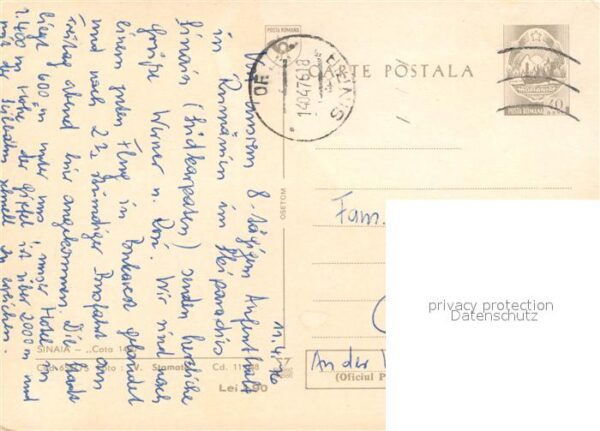 POSTA ROMANA
CARTE POSTALA
ROMANIA
POSTA ROMANA
14.04.76.18
OSETOM
11.4.76
Von unserem 8-tägigen Aufenthalt
in Rumänien im Skiparadies
Sinaia (Südkarpaten) senden herzliche
Grüße Werner u. Rosi. Wir sind nach
einem guten Flug in Bukarest gelandet
und nach 2½ stündiger Busfahrt am
Freitag abend hier angekommen. Die Stadt
liegt 600 m unter uns, unser Hotel in
1.400 m Höhe, der Gipfel ist über 2000 m und
mit der Seilbahn schnell zu erreichen.
Fam.
An der
(Oficiul P
SINAIA — „Cota 14
Foto: W. Stamate
Cd. 11
Lei
privacy protection
Datenschutz